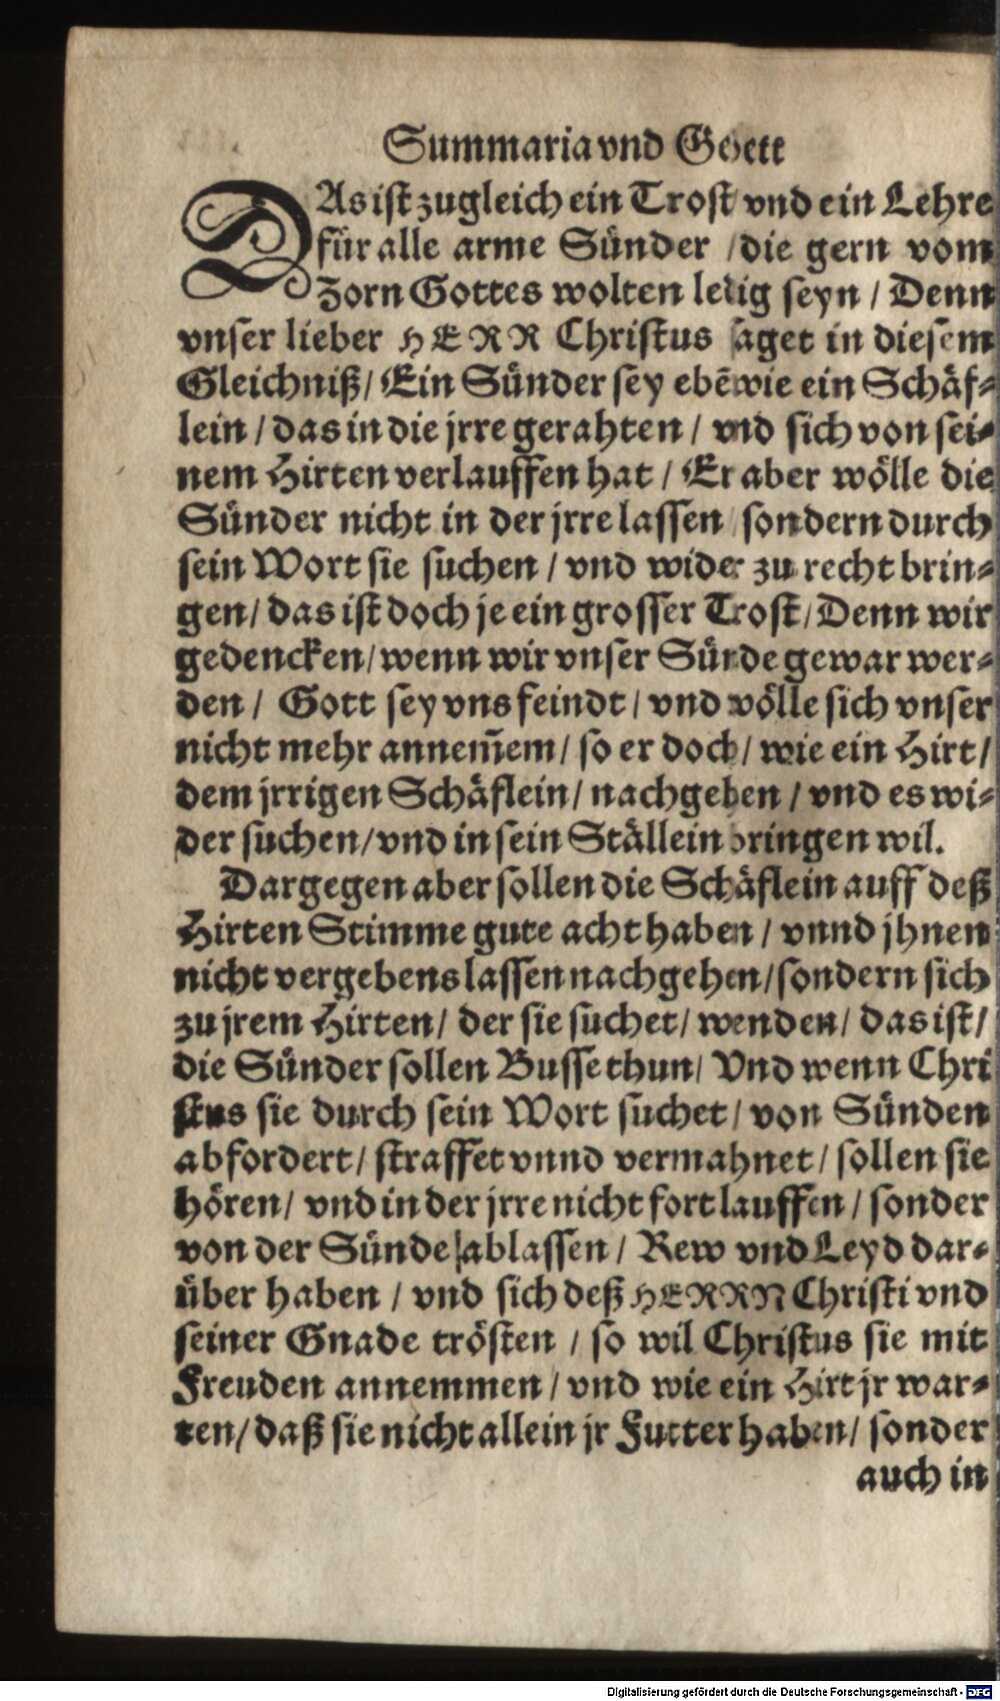 Summaria vnd Gebett
DAs ist zugleich ein Trost vnd ein Lehre
für alle arme Sünder / die gern vom
Zorn Gottes wolten ledig seyn / Denn
vnser lieber HERR Christus saget in diesem
Gleichniß / Ein Sünder sey ebẽ wie ein Schäf-
lein / das in die jrre gerahten / vnd sich von sei-
nem Hirten verlauffen hat / Er aber wölle die
Sünder nicht in der jrre lassen sondern durch
sein Wort sie suchen / vnd wider zu recht brin-
gen / das ist doch je ein grosser Trost / Denn wir
gedencken / wenn wir vnser Sünde gewar wer-
den / Gott sey vns feindt / vnd wölle sich vnser
nicht mehr annem̃em / so er doch / wie ein Hirt /
dem jrrigen Schäflein / nachgehen / vnd es wi-
der suchen / vnd in sein Ställein bringen wil.
Dargegen aber sollen die Schäflein auff deß
Hirten Stimme gute acht haben / vnnd jhnen
nicht vergebens lassen nachgehen / sondern sich
zu jrem Hirten / der sie suchet / wenden / das ist /
die Sünder sollen Busse thun / Vnd wenn Chri
stus sie durch sein Wort suchet / von Sünden
abfordert / straffet vnnd vermahnet / sollen sie
hören / vnd in der jrre nicht fort lauffen / sonder
von der Sünde ablassen / Rew vnd Leyd dar-
über haben / vnd sich deß HERRN Christi vnd
seiner Gnade trösten / so wil Christus sie mit
Freuden annemmen / vnd wie ein Hirt jr war-
ten / daß sie nicht allein jr Futter haben / sonder
auch in
Digitalisierung gefördert durch die Deutsche Forschungsgemeinschaft - DFG